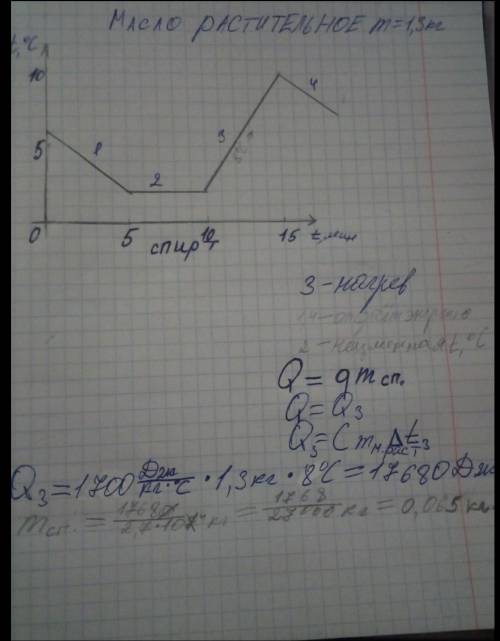 Масло растительное m=1,3кг
t,°C
10
4
3
8°C
5
1
2
0 5 10 15 t,мин
спирт
3-нагрев
1,4-
2-неизменная t,°C
Q=qm сп.
Q=Q₃
Q₃=Cm м.раст. Δt₃
Q₃=1700 Дж/кг·°C · 1,3кг · 8°C = 17680 Дж
m сп. = 17680/2,7·10⁷ кг = 1768/27000 кг = 0,065 кг